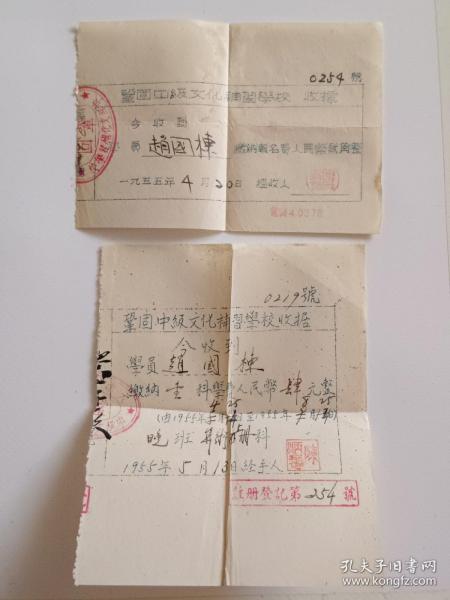 0254 號
鞏固中級文化補習學校 收據
今收到
員 趙國棟 繳納報名費人民幣貳角整
一九五五年 4 月 20 日 經收人
0219號
鞏固中級文化補習學校收据
今收到
學員 趙國棟
繳納 壹 科學費人民幣 肆 元整
(由1955年 至1955年
晚 班 算術 科
1955年 5 月 13日經手人
註册登記第 254 號
孔夫子旧书网
www.kongfz.com